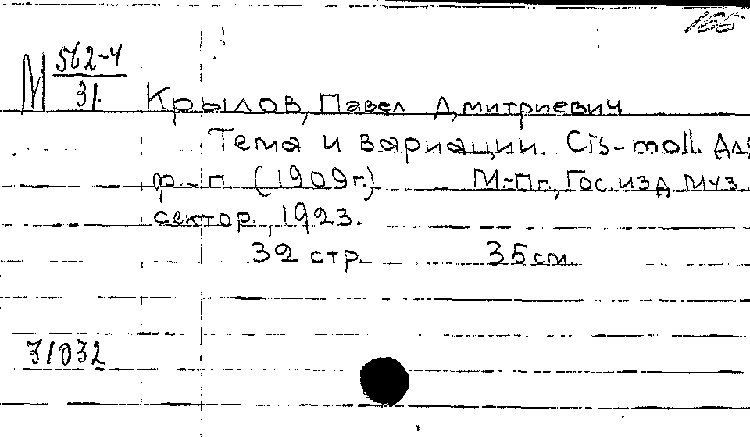 М 562-4
31.
Крылов, Павел Дмитриевич
Тема и вариации. Cis-moll. Для
ф-п. (1909г.) М-Пг., Гос. изд. Муз.
сектор, 1923.
32 стр. 35 см.
31032